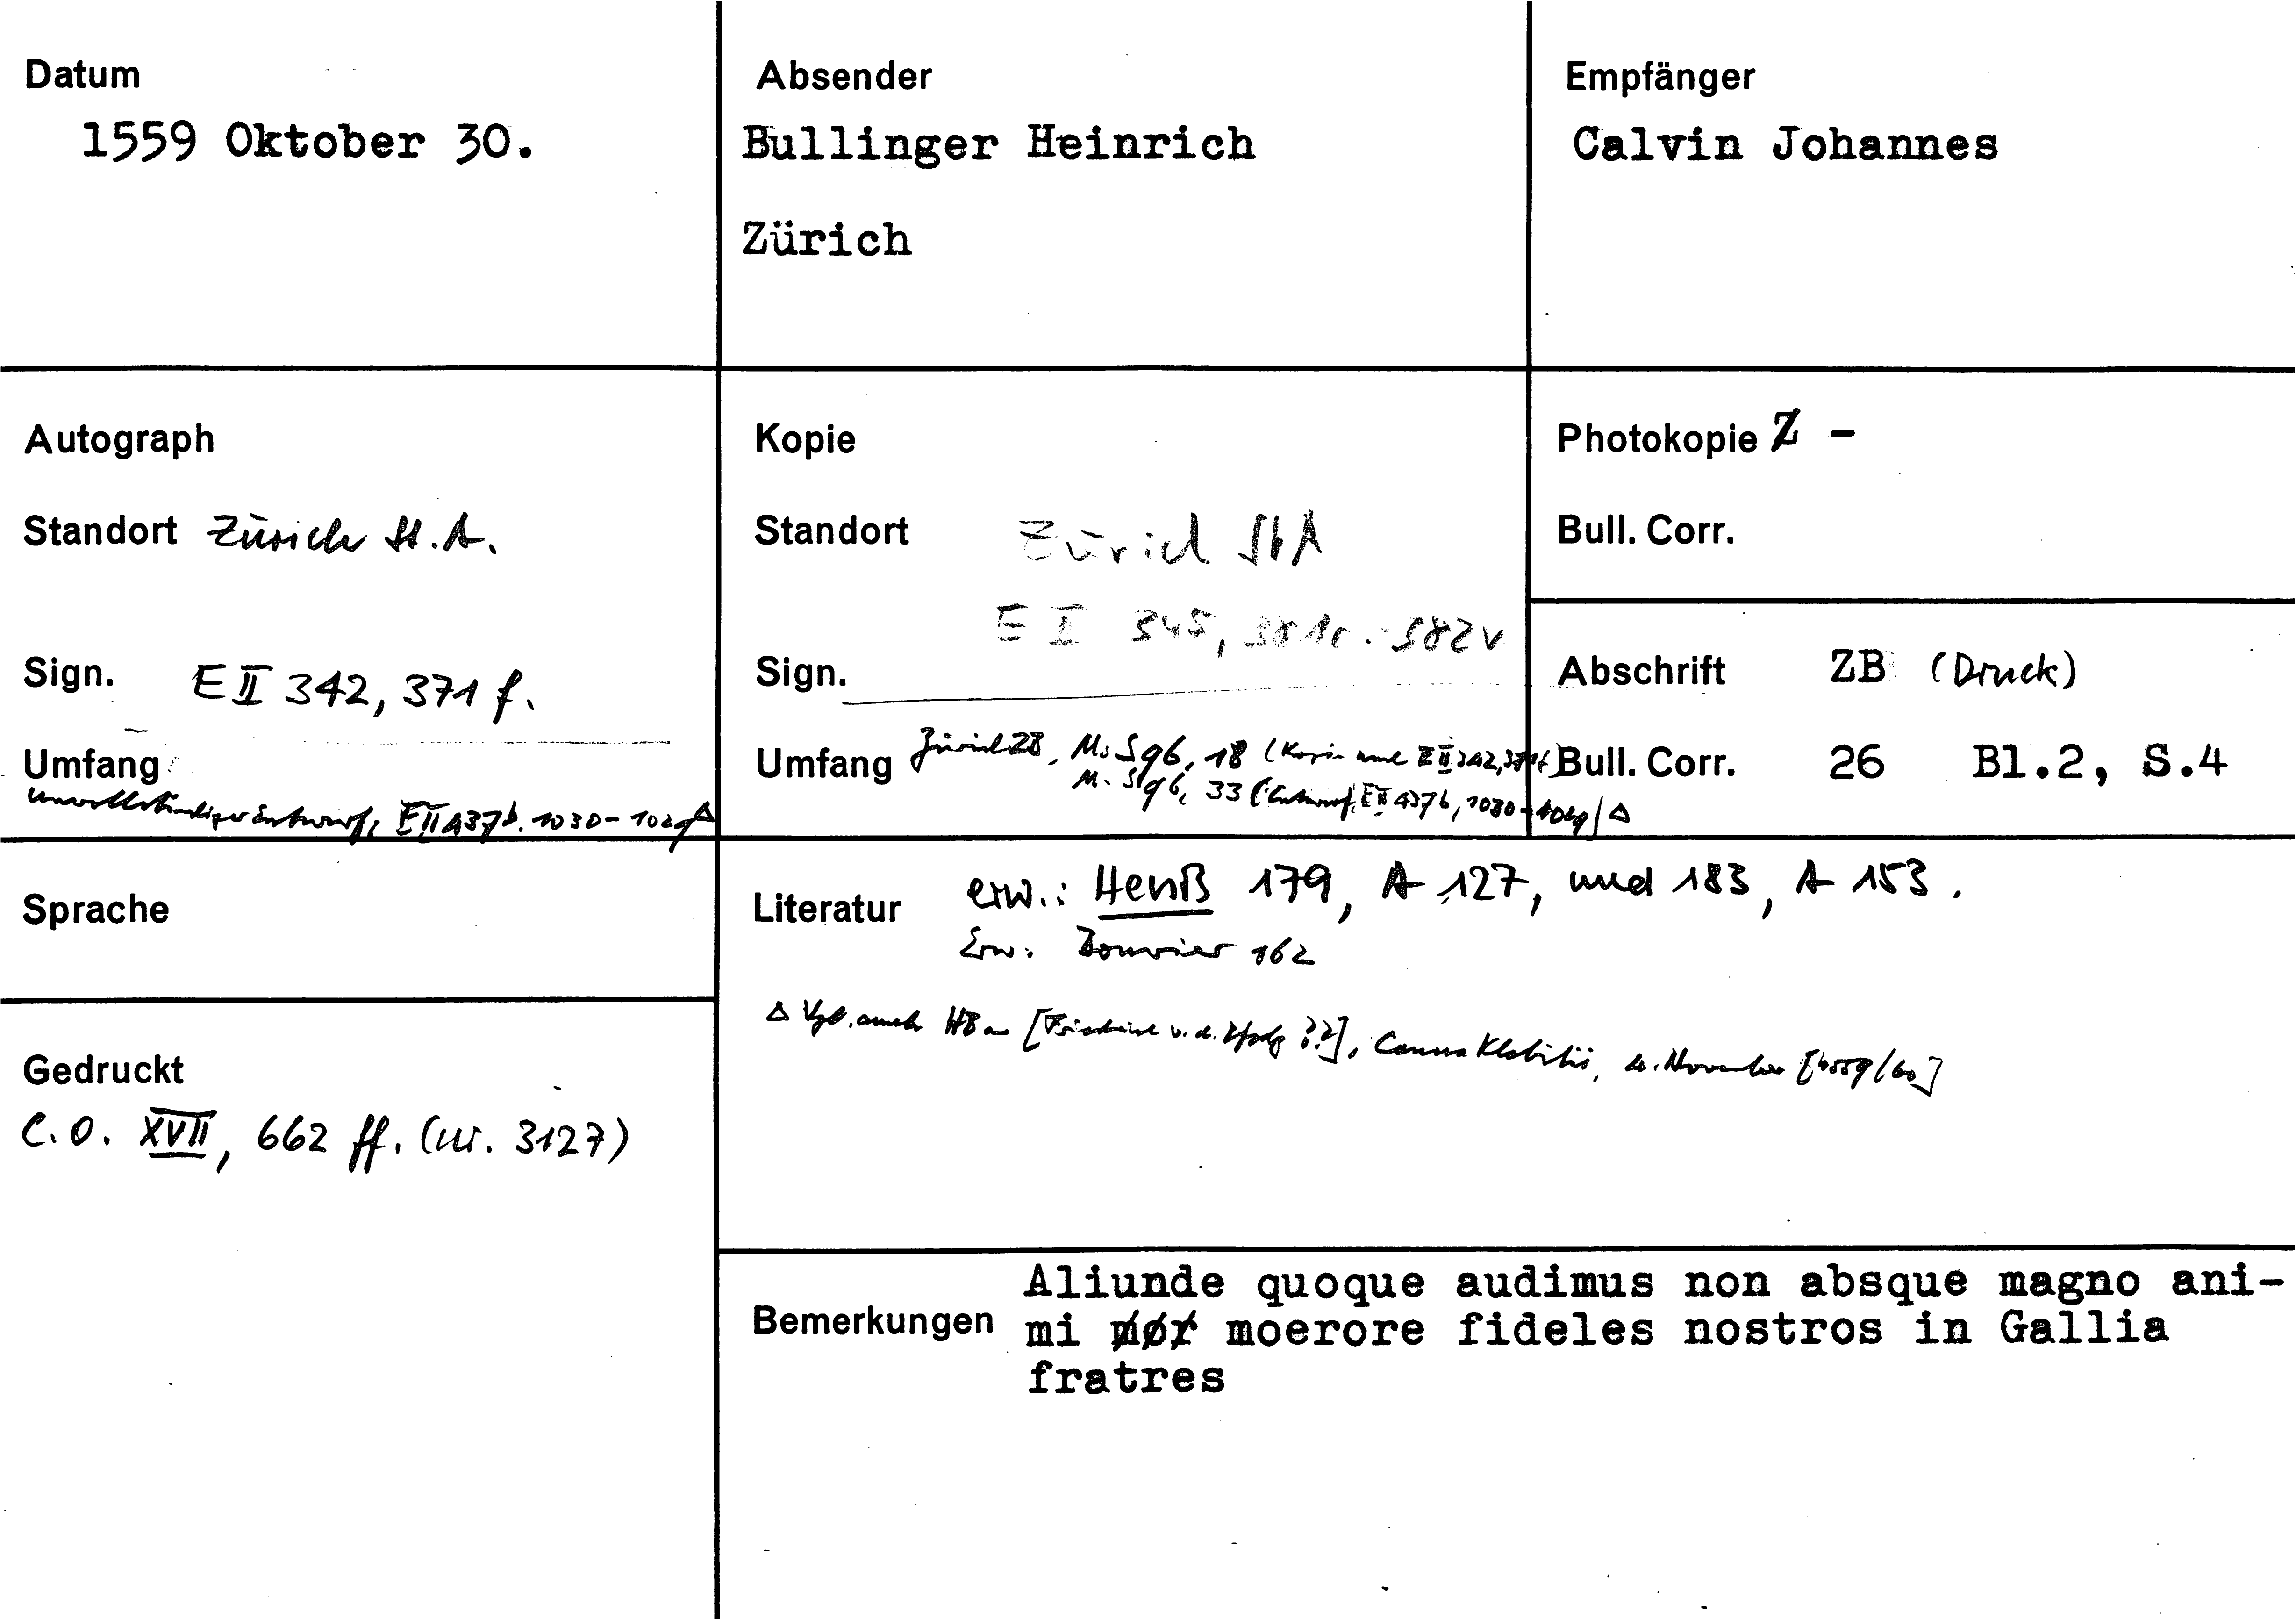 Datum
1559 Oktober 30.
Absender
Bullinger Heinrich
Zürich
Empfänger
Calvin Johannes
Autograph
Standort Zürich St.A.
Sign. E II 342, 371 f.
Umfang
Unvollständiger Entwurf, E II 437b, 1030-1029 Δ
Kopie
Standort Zürich StA
E I 345, 381r.-382v
Sign.
Umfang Zürich ZB, Ms S 96, 18 (Kopie von E II 342, 371f)
Ms S 96, 33 (Entwurf, E II 437b, 1030-1029) Δ
Photokopie Z -
Bull. Corr.
Abschrift ZB (Druck)
Bull. Corr. 26 Bl.2, S.4
Sprache
Gedruckt
C.O. XVII, 662 ff. (nr. 3127)
Literatur erw.: Henß 179, A 127, und 183, A 153.
Erw. Bouvier 162
Δ Vgl. auch HB an [v. d. ??], November [1559/60]
Bemerkungen
Aliunde quoque audimus non absque magno ani-
mi mor moerore fideles nostros in Gallia
fratres